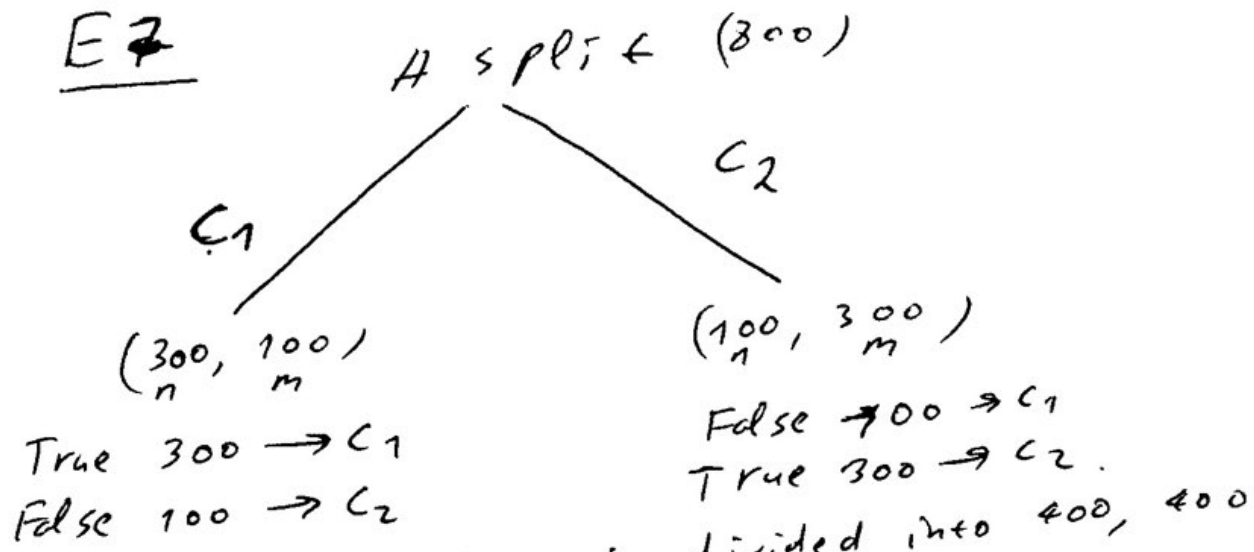 E7
A split (800)
C1
C2
(300, 100)
n m
(100, 300)
n m
True 300 → C1
False 100 → C2
False 100 → C1
True 300 → C2.
divided into 400, 400